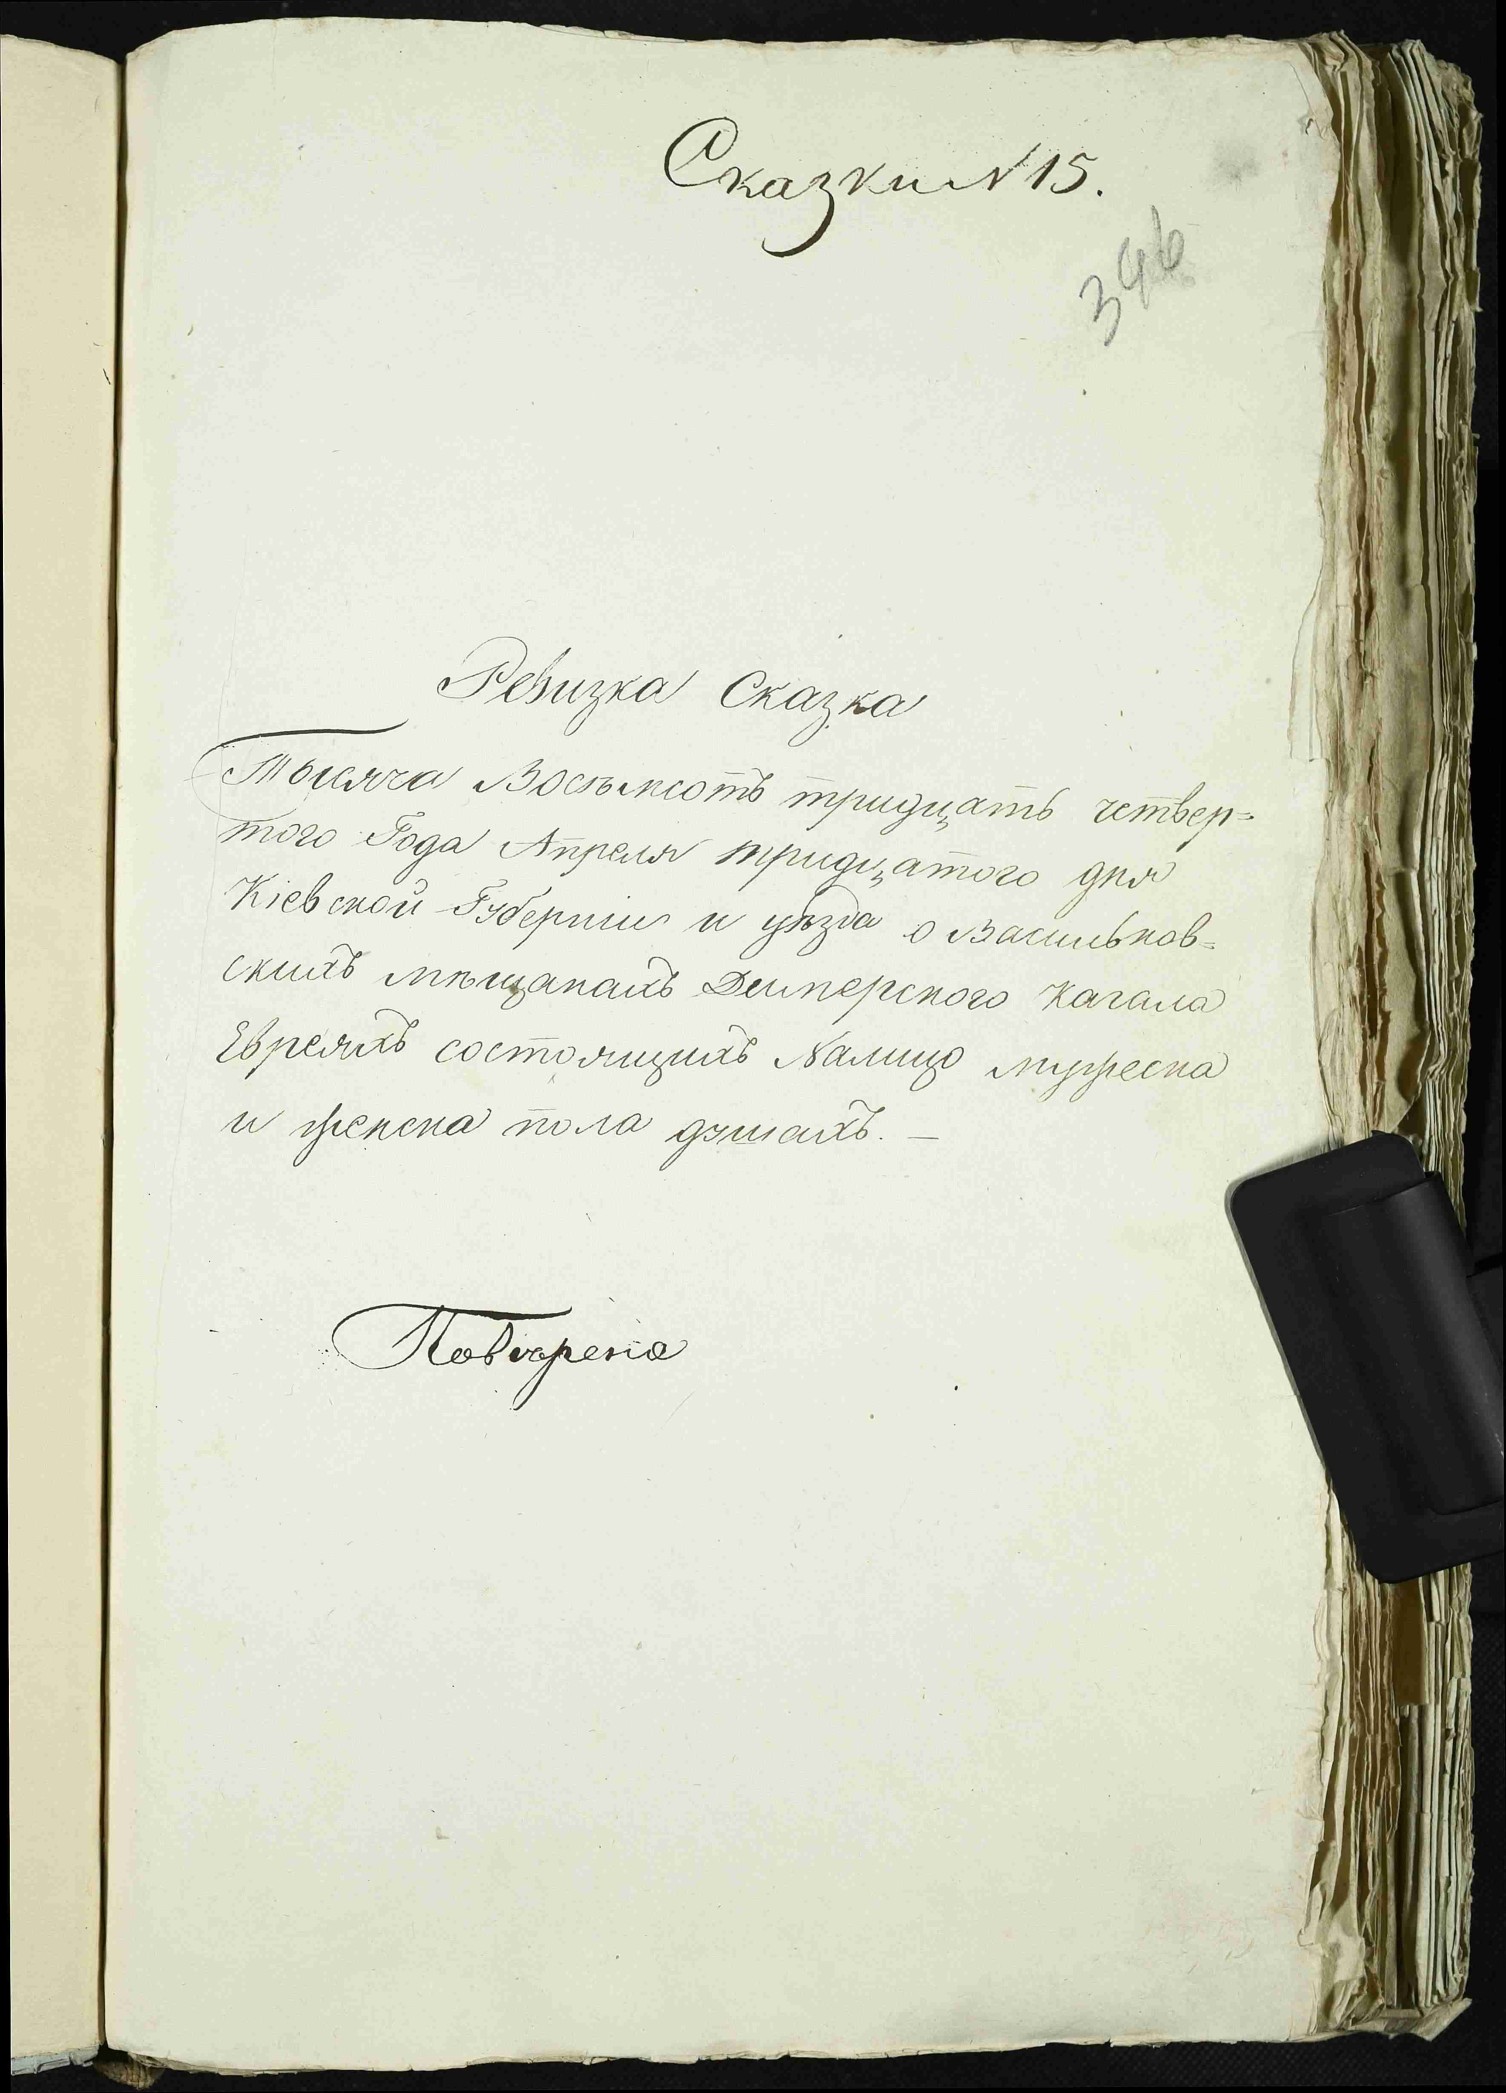 Сказки N 15.
346
Ревизка Сказка
Тысяча Восемсотъ тридцать четвер=
того Года Апреля тридцатого дня
Кіевской Губерніи и уѣзда о Васильков=
скихъ мѣщанахъ Димерского Кагала
Евреяхъ состоящихъ Налицо мужеска
и женска пола душахъ. —
Повѣрена